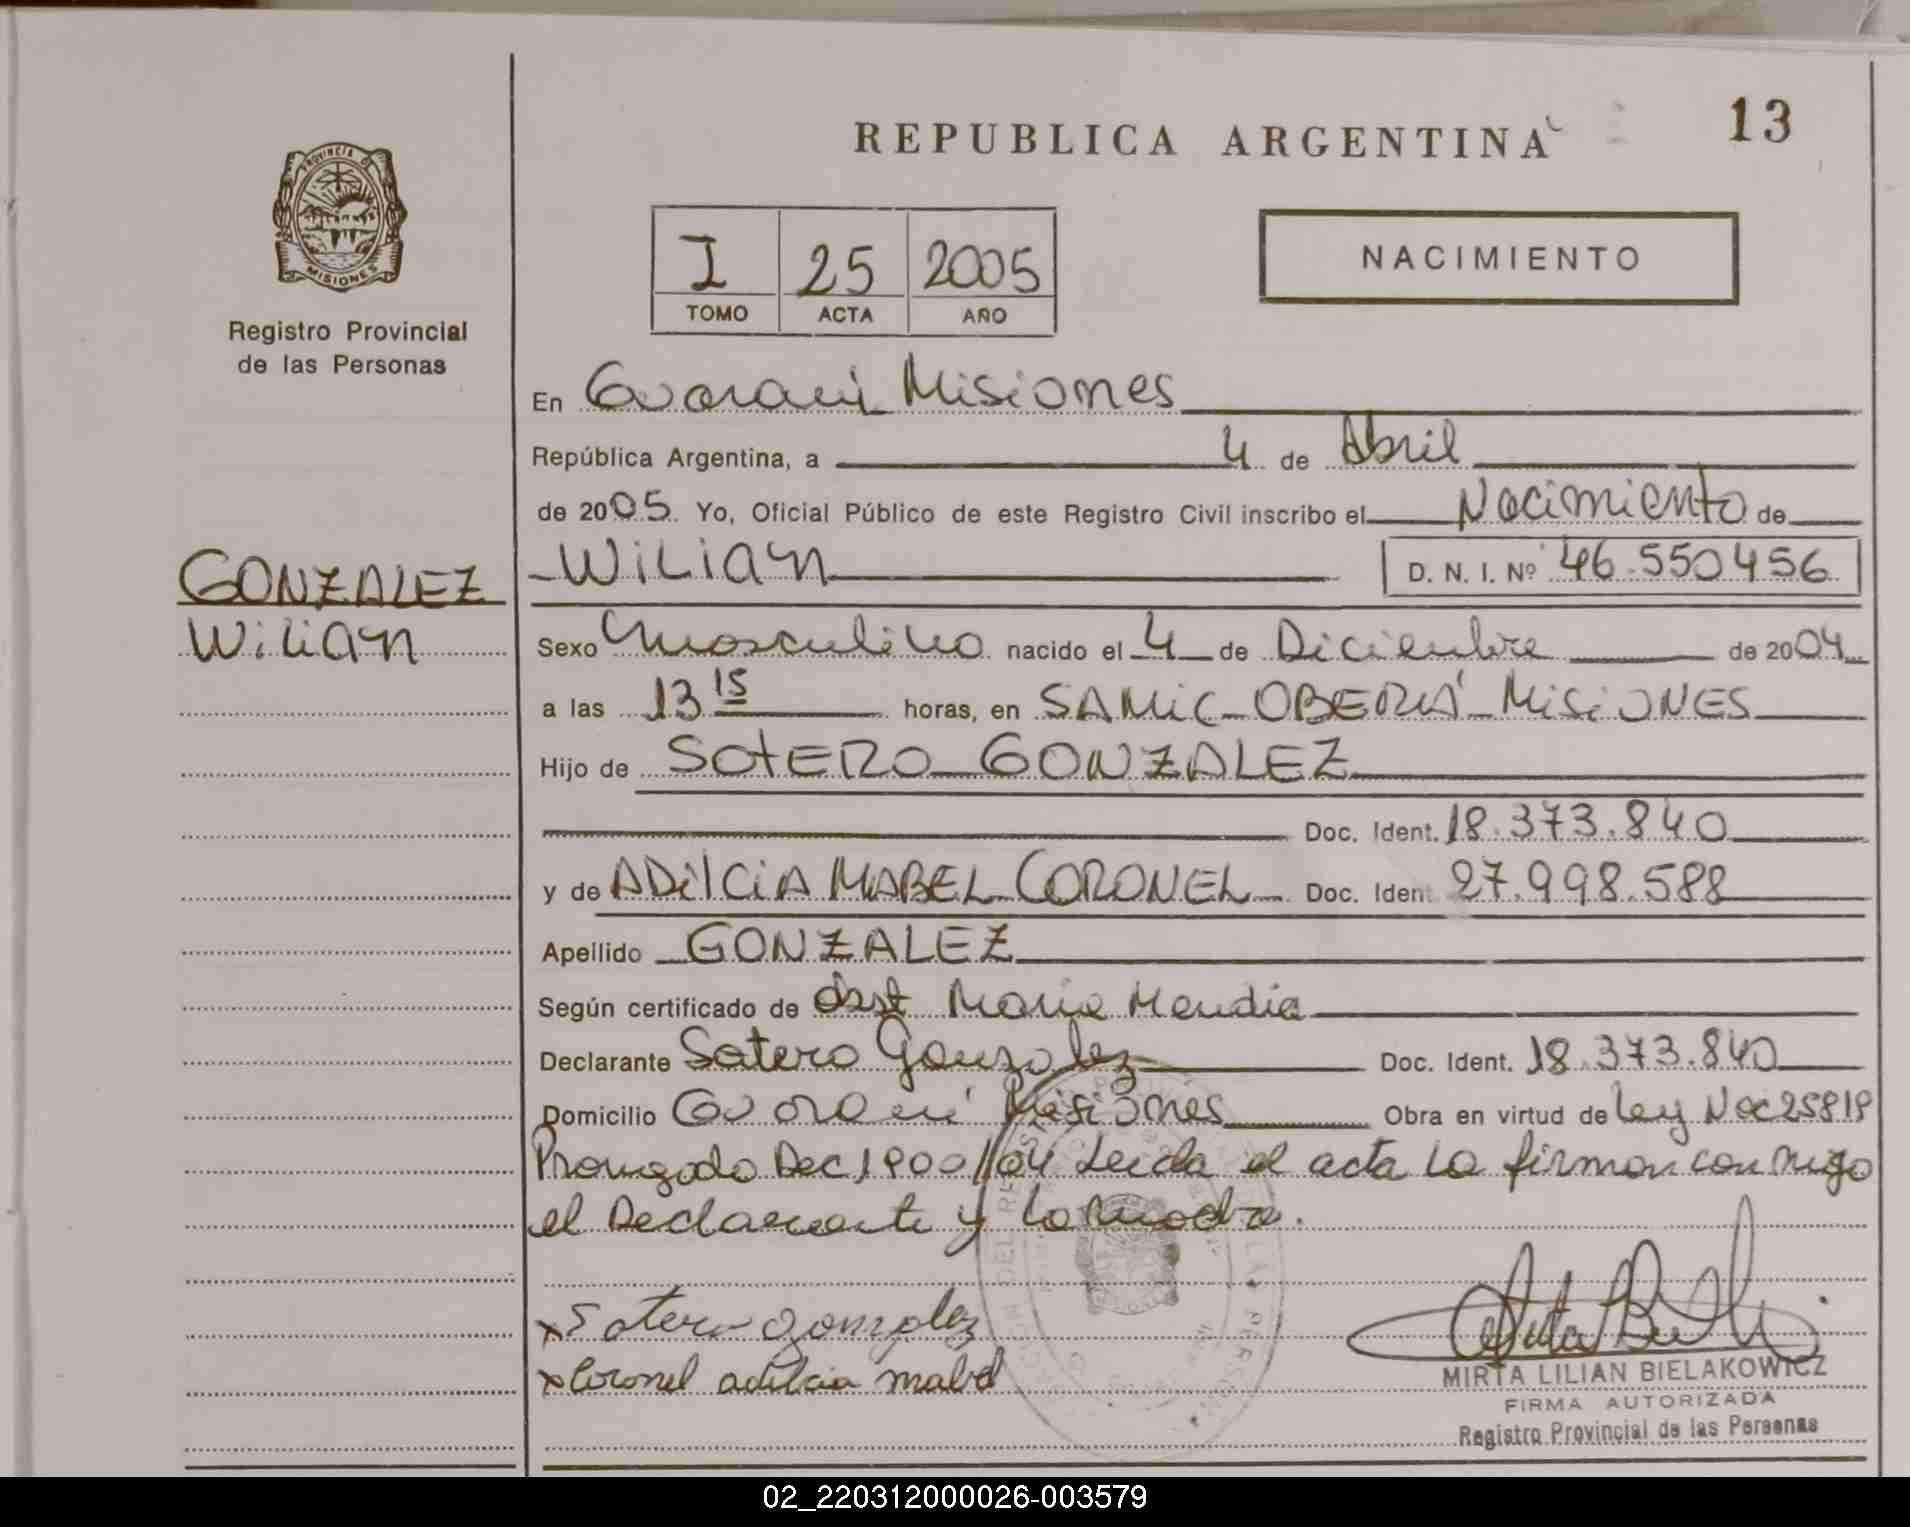 REPUBLICA ARGENTINA
13
PROVINCIA DE
MISIONES
Registro Provincial
de las Personas
I 25 2005
TOMO ACTA AÑO
NACIMIENTO
En Guaraní Misiones
República Argentina, a 4 de Abril
de 2005 Yo, Oficial Público de este Registro Civil inscribo el Nacimiento de
GONZALEZ
Wilian
Wilian D. N. I. Nº 46.550456
Sexo Masculino nacido el 4 de Diciembre de 2004
a las 13 15 horas, en SAMiC - OBERÁ - MisiONES
Hijo de SOtERO GONZALEZ
Doc. Ident. 18.373.840
y de ADilCiA MABEL CORONEL Doc. Ident 27.998.588
Apellido GONZALEZ
Según certificado de Obst Maria Mendia
Declarante Sotero Gonzalez Doc. Ident. 18.373.840
Domicilio Guaraní Misiones Obra en virtud de Ley Nac 25819
Prorrogado Dec 1900//04 Leida el acta La firman conmigo
el Declarante y la madre.
x Sotero gonzalez
x Coronel adilcia mabel
MIRTA LILIAN BIELAKOWICZ
FIRMA AUTORIZADA
Registro Provincial de las Personas
02_220312000026-003579